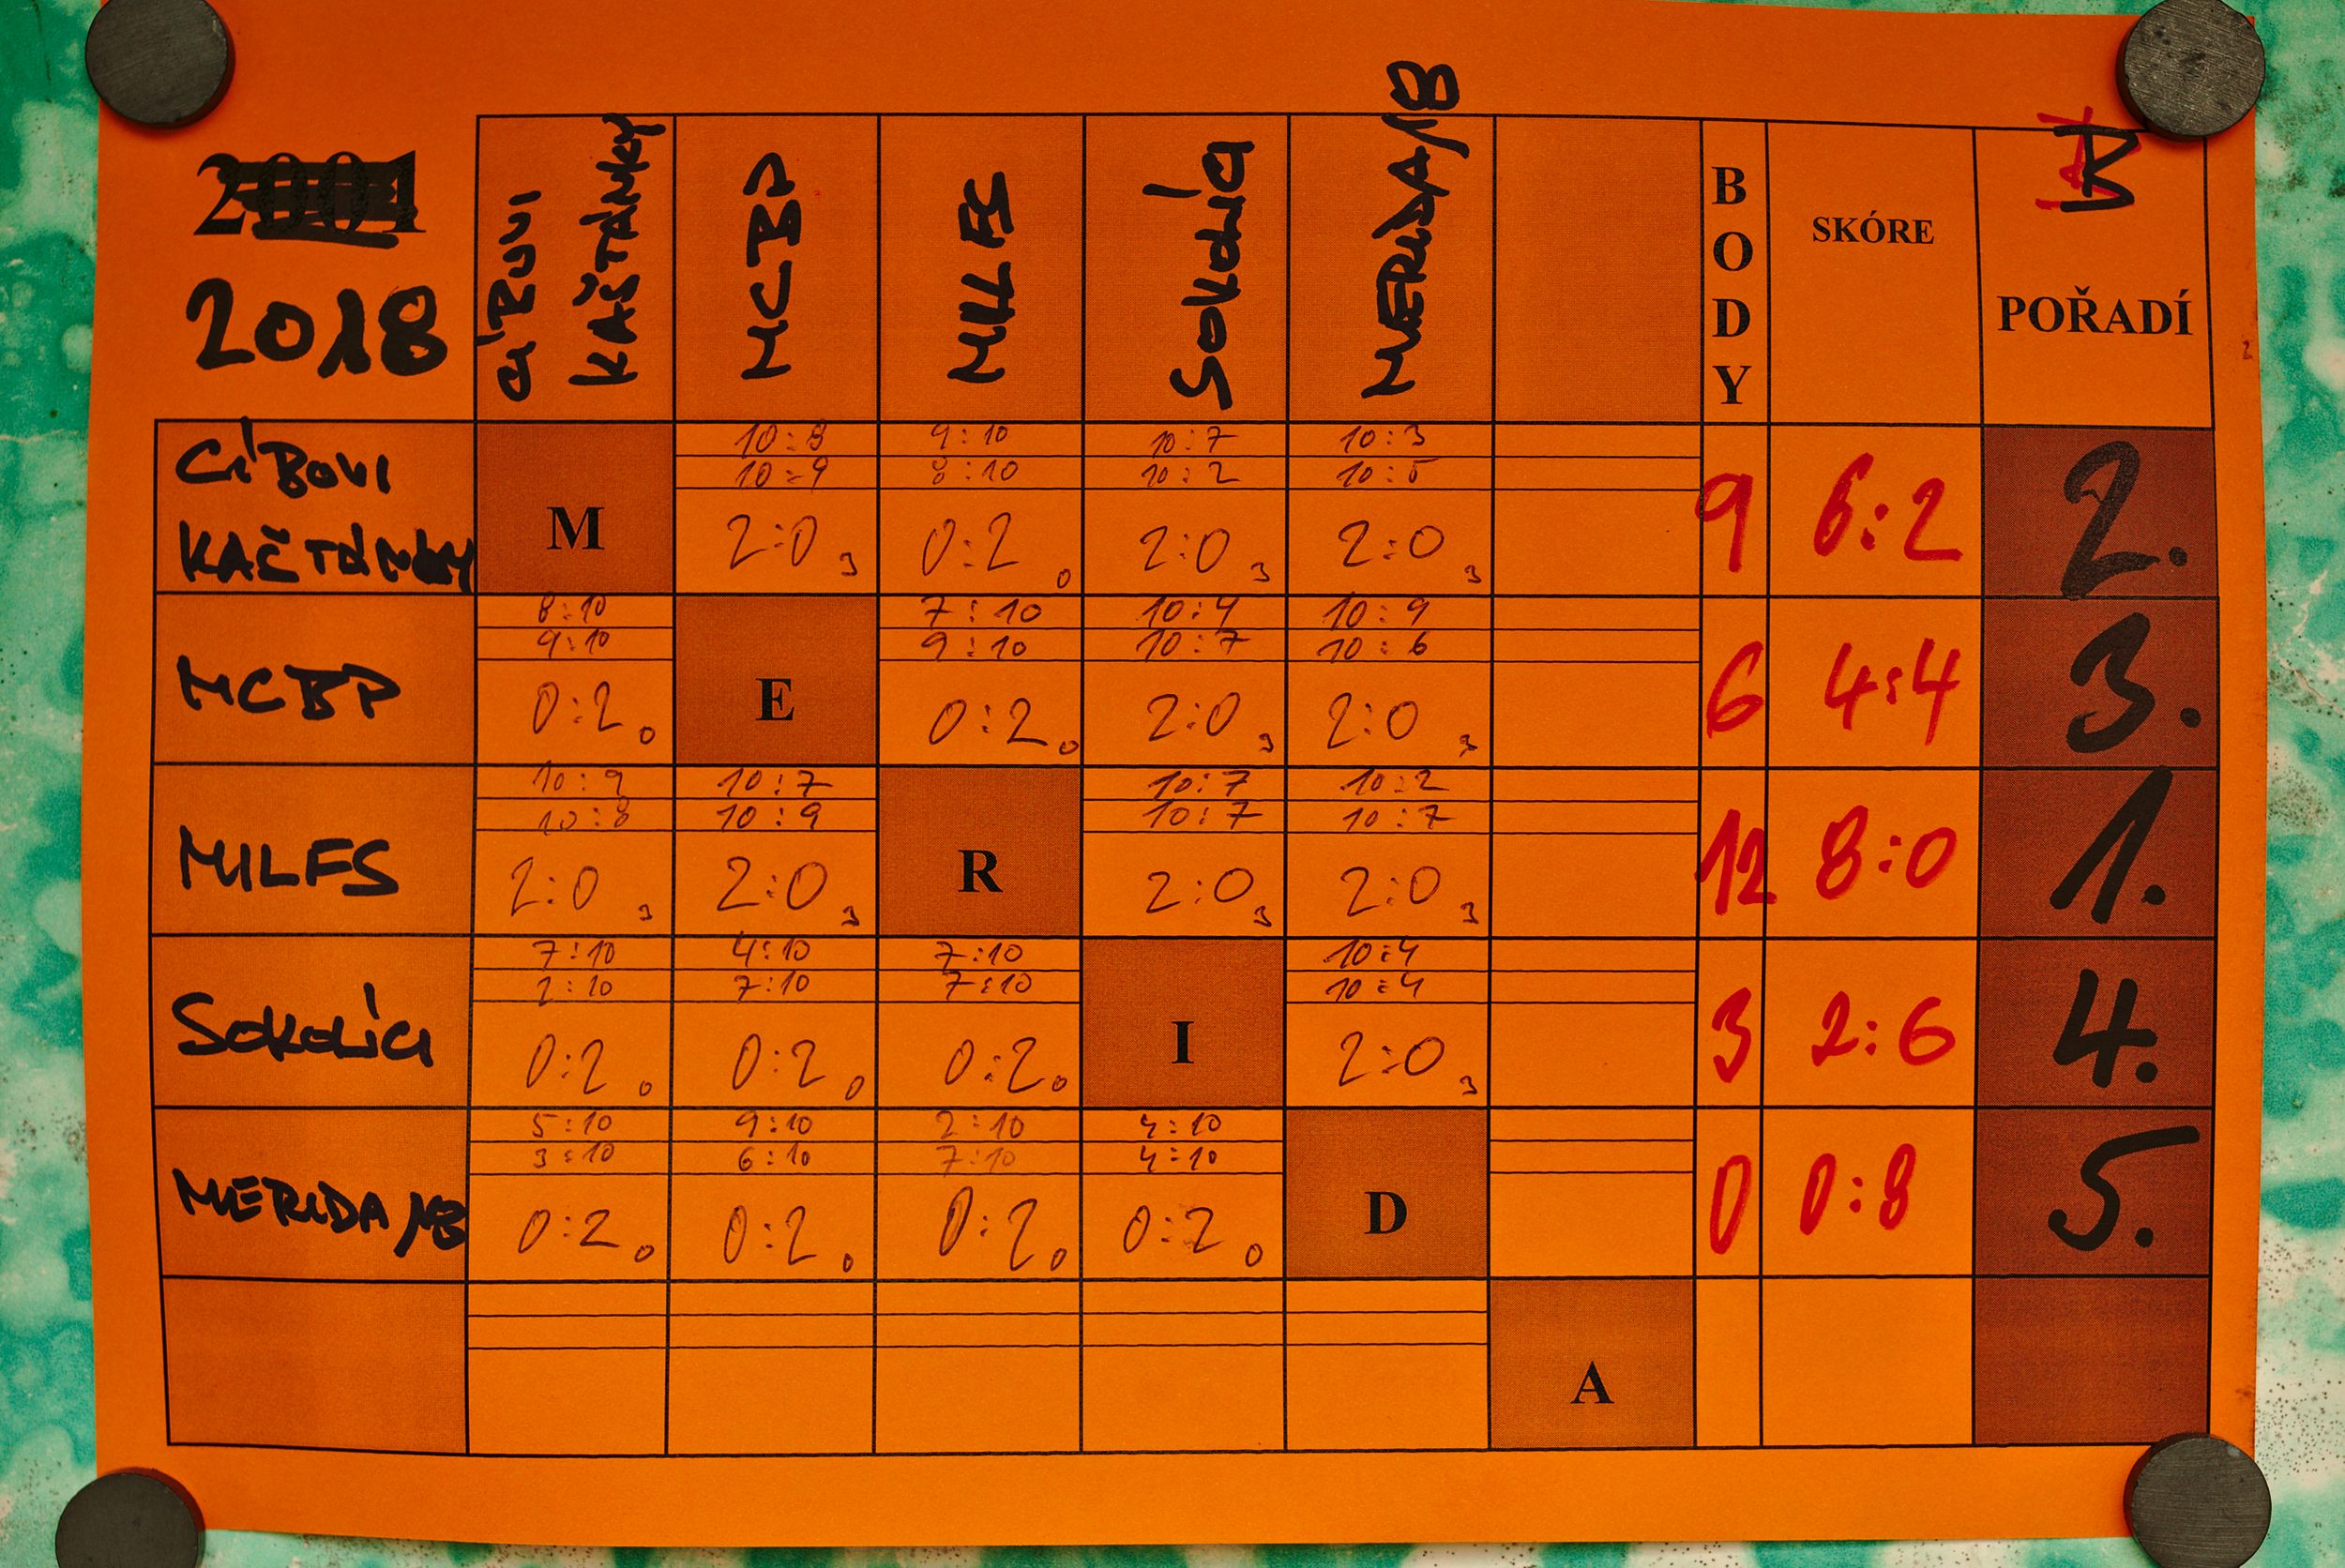 2018
CÍBOVI KAŠTÁNKY MCBP MILFS SOKOLÍCI MERIDA/NB
BODY SKÓRE B POŘADÍ
CÍBOVI KAŠTÁNKY
10:8 9:10 10:7 10:3
10:9 8:10 10:2 10:5
M 2:0 3 0:2 0 2:0 3 2:0 3 9 6:2 2.
8:10 7:10 10:4 10:9
9:10 9:10 10:7 10:6
MCBP 0:2 0 E 0:2 0 2:0 3 2:0 3 6 4:4 3.
10:9 10:7 10:7 10:2
10:8 10:9 10:7 10:7
MILFS 2:0 3 2:0 3 R 2:0 3 2:0 3 12 8:0 1.
7:10 4:10 7:10 10:4
2:10 7:10 7:10 10:4
SOKOLÍCI 0:2 0 0:2 0 0:2 0 I 2:0 3 3 2:6 4.
5:10 9:10 2:10 4:10
3:10 6:10 7:10 4:10
MERIDA/NB 0:2 0 0:2 0 0:2 0 0:2 0 D 0 0:8 5.
A